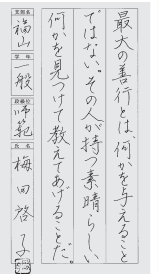 最大の善行とは、何かを与えること
ではない。その人が持つ素晴らしい
何かを見つけて教えてあげることだ。
支部名 福山 学年 一般 段級位 師範 氏名 梅田啓子